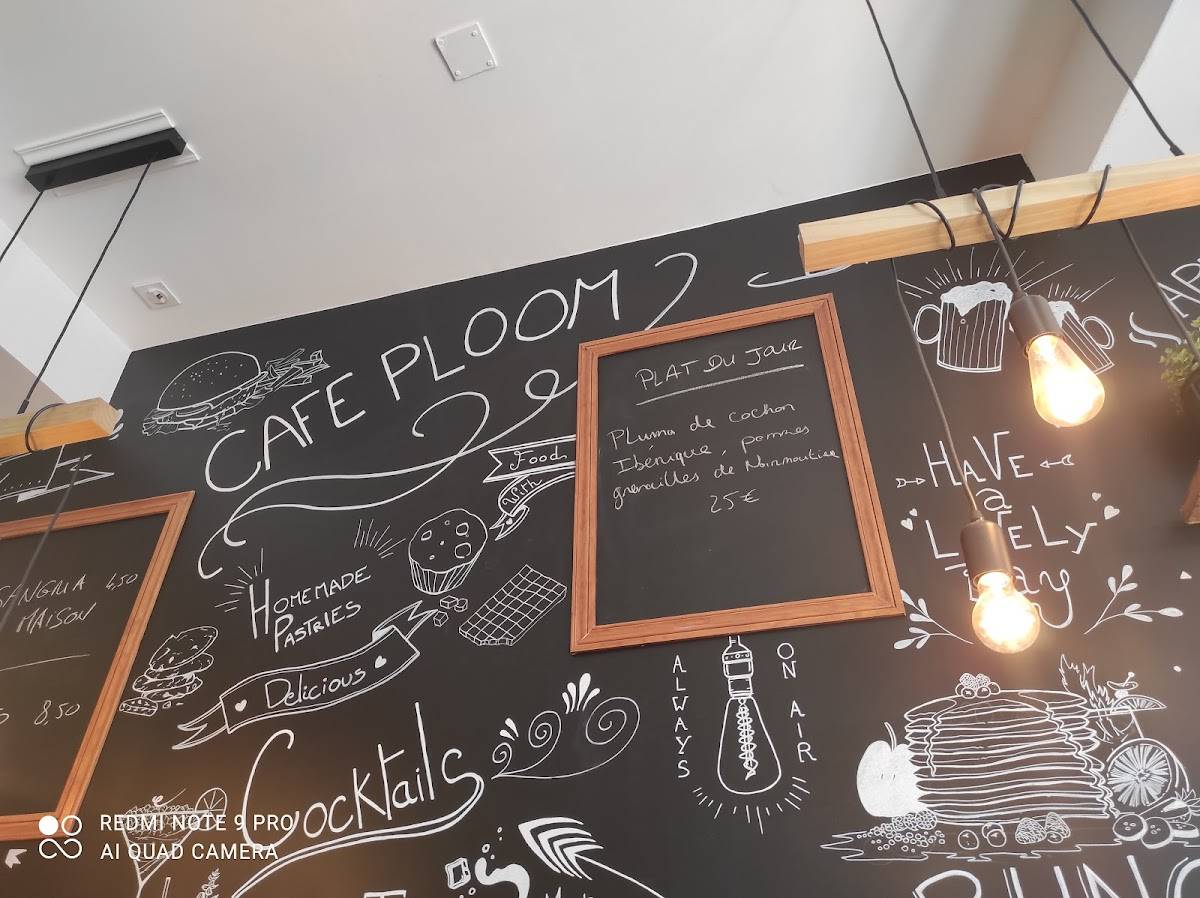 CAFE PLOOM
PLAT DU JOUR
Pluma de cochon
Ibérique, pommes
grenailles de Noirmoutier
25€
Food
With
HAVE
a
LOVELY
Day
SANGRIA 4,50
MAISON
8,50
HOMEMADE
PASTRIES
Delicious
ALWAYS
ON AIR
Cocktails
REDMI NOTE 9 PRO
AI QUAD CAMERA